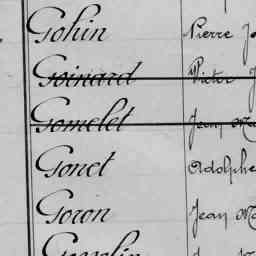 Gohin Pierre
Goinard Victor
Gomelet Jean Ma
Gonet Adolphe
Goron Jean Ma